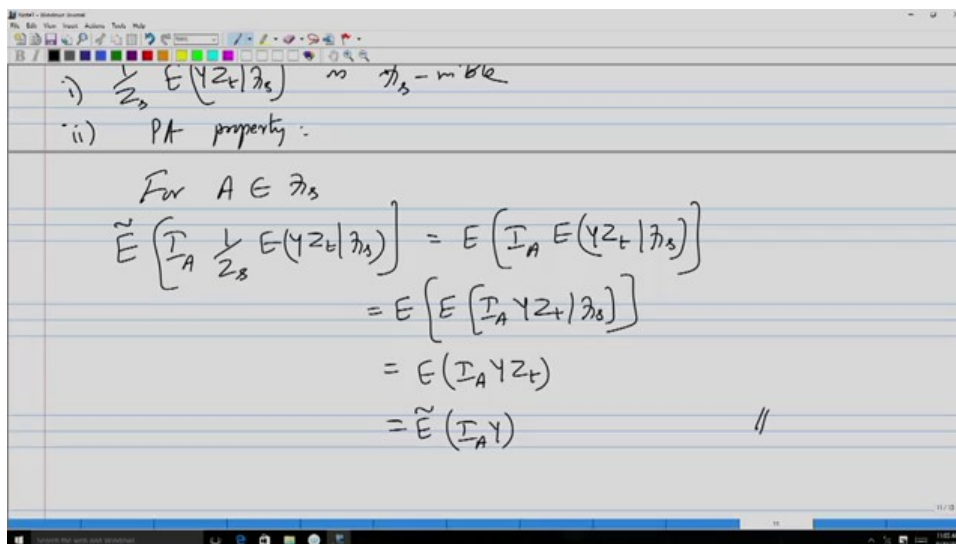 Note1 - Windows Journal
File Edit View Insert Actions Tools Help
B I
i) 1/Z_s E(YZ_t|ℱ_s) is ℱ_s-mible
ii) PA property :
For A ∈ ℱ_s
Ẽ[I_A 1/Z_s E(YZ_t|ℱ_s)] = E[I_A E(YZ_t|ℱ_s)]
= E[E[I_A YZ_t|ℱ_s]]
= E(I_A YZ_t)
= Ẽ(I_A Y) //
11
Search the web and Windows